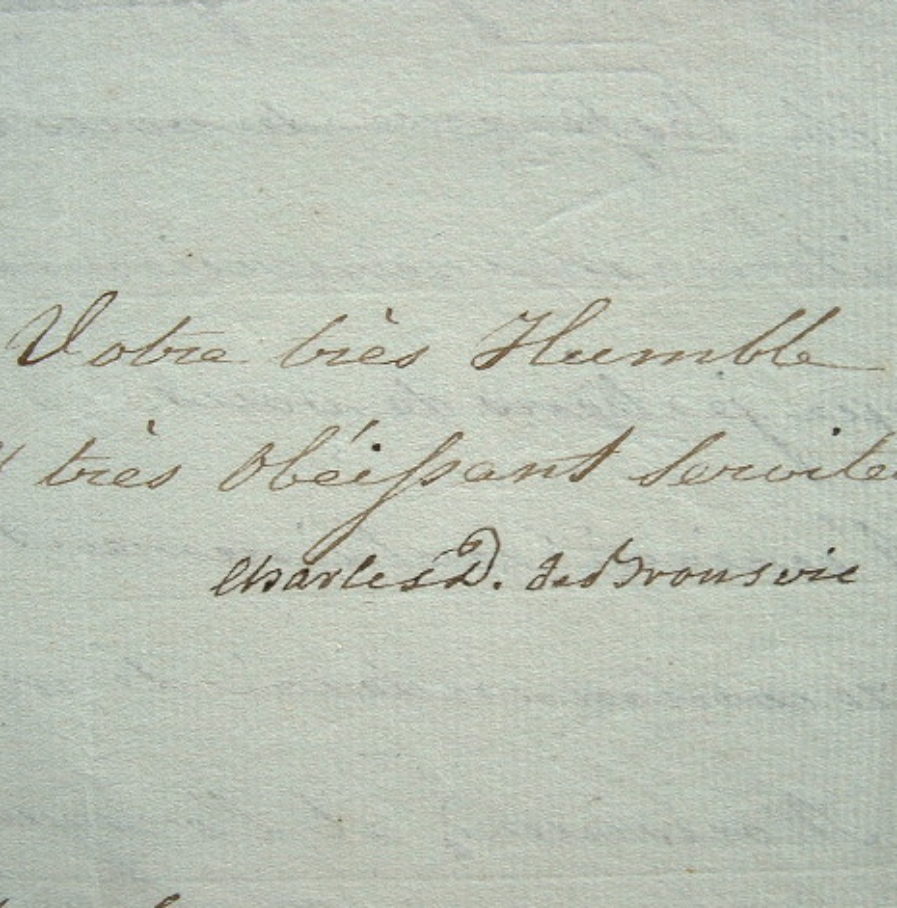 Votre très Humble
très Obéissant Servite
Charles D. de Bronsvic